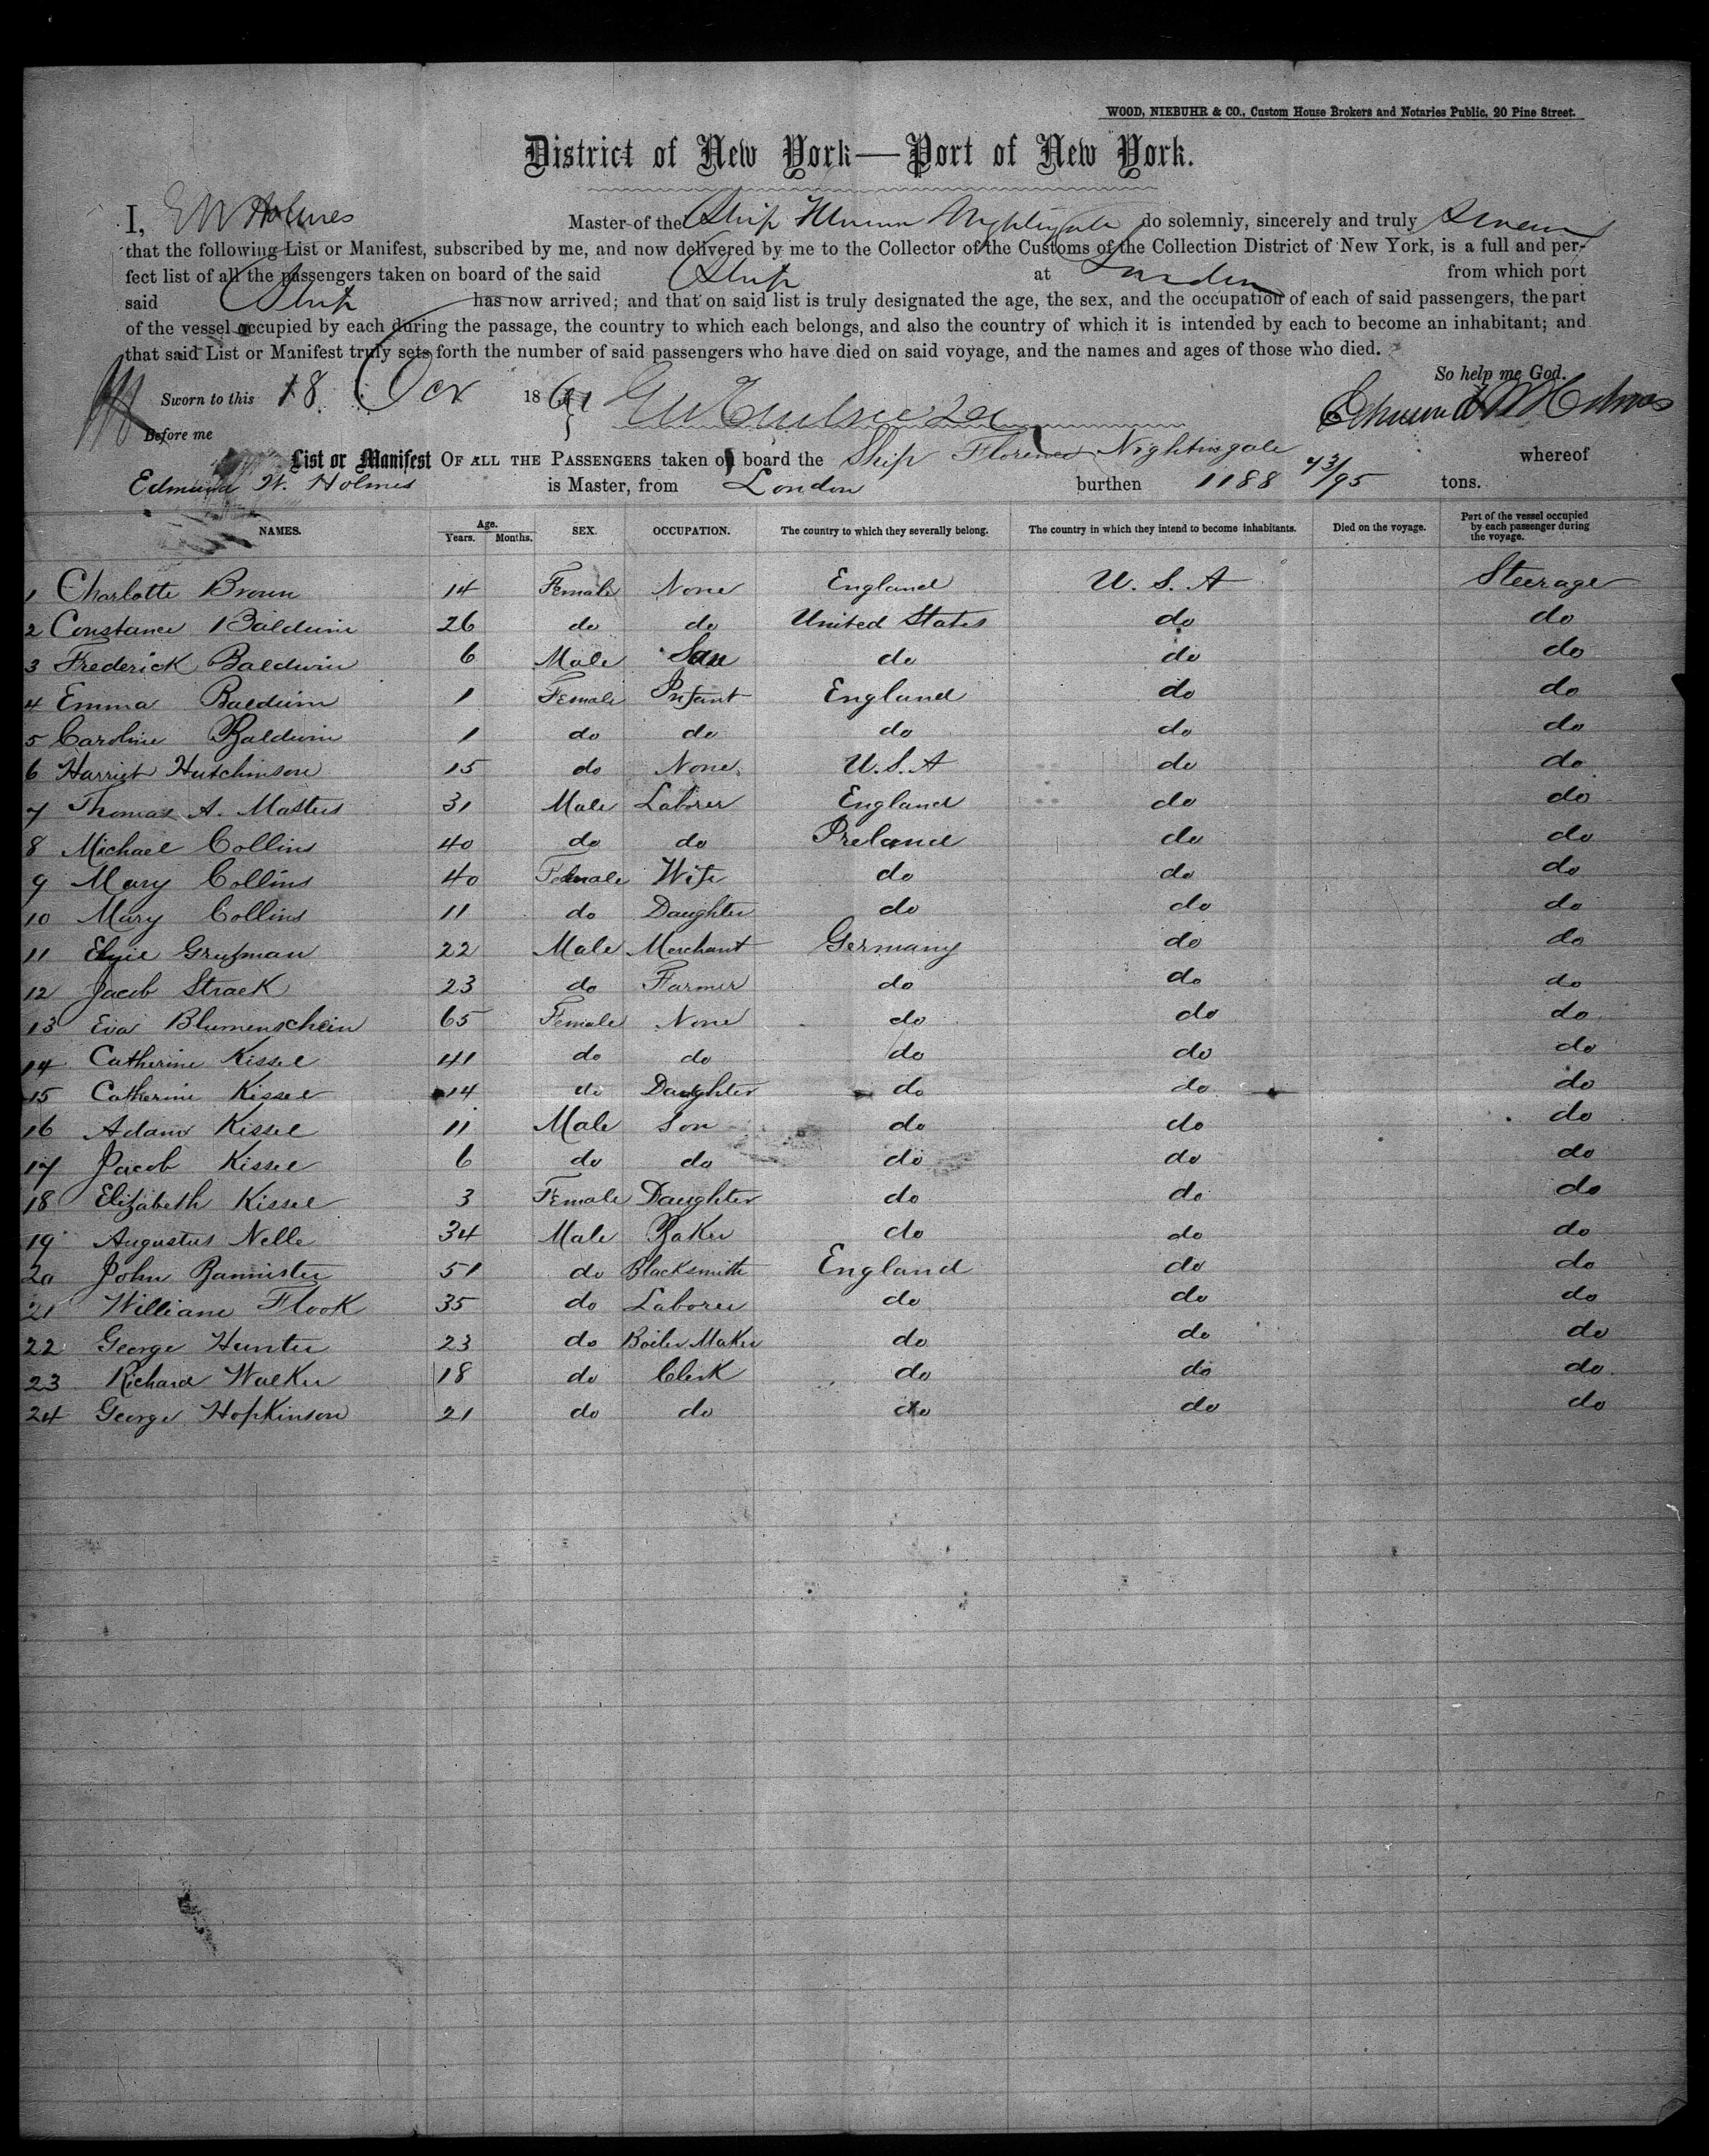 WOOD, NIEBUHR & CO., Custom House Brokers and Notaries Public, 20 Pine Street.
District of New York—Port of New York.
I, E W Holmes Master of the Ship Florence Nightingale do solemnly, sincerely and truly swear
that the following List or Manifest, subscribed by me, and now delivered by me to the Collector of the Customs of the Collection District of New York, is a full and per-
fect list of all the passengers taken on board of the said Ship at London from which port
said Ship has now arrived; and that on said list is truly designated the age, the sex, and the occupation of each of said passengers, the part
of the vessel occupied by each during the passage, the country to which each belongs, and also the country of which it is intended by each to become an inhabitant; and
that said List or Manifest truly sets forth the number of said passengers who have died on said voyage, and the names and ages of those who died.
So help me God.
Sworn to this 18 Oct 1861 Edmund W Holmes
Before me
List or Manifest OF ALL THE PASSENGERS taken on board the Ship Florence Nightingale whereof
Edmund W. Holmes is Master, from London burthen 1188 43/95 tons.
NAMES. Age. Years. Months. SEX. OCCUPATION. The country to which they severally belong. The country in which they intend to become inhabitants. Died on the voyage. Part of the vessel occupied by each passenger during the voyage.
1 Charlotte Brown 14 Female None England U. S. A Steerage
2 Constance Baldwin 26 do do United States do do
3 Frederick Baldwin 6 Male Son do do do
4 Emma Baldwin 1 Female Infant England do do
5 Caroline Baldwin 1 do do do do do
6 Harriet Hutchinson 15 do None U.S.A do do
7 Thomas A. Masters 31 Male Laborer England do do
8 Michael Collins 40 do do Ireland do do
9 Mary Collins 40 Female Wife do do do
10 Mary Collins 11 do Daughter do do do
11 22 Male Merchant Germany do do
12 Jacob Strack 23 do Farmer do do do
13 Eva Blumenschein 65 Female None do do do
14 Catherine Kissel 41 do do do do do
15 Catherine Kissel 14 do Daughter do do do
16 Adam Kissel 11 Male Son do do do
17 Jacob Kissel 6 do do do do do
18 Elizabeth Kissel 3 Female Daughter do do do
19 Augustus Nelle 34 Male Baker do do do
20 John Bannister 51 do Blacksmith England do do
21 William Flook 35 do Laborer do do do
22 George Hunter 23 do Boiler Maker do do do
23 Richard Walker 18 do Clerk do do do
24 George Hopkinson 21 do do do do do